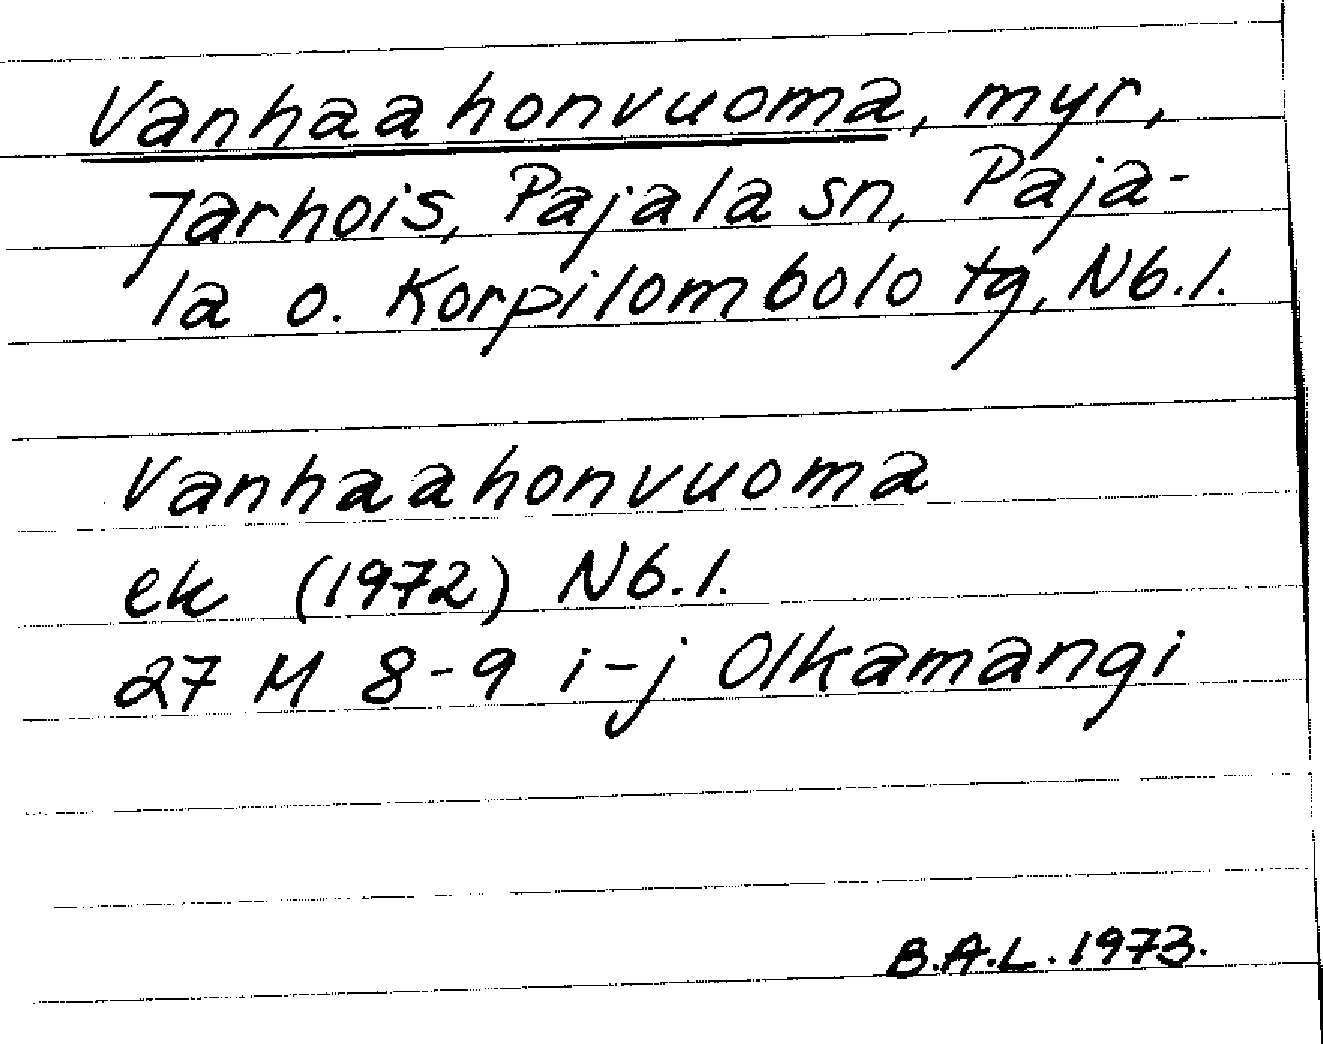 Vanhaahonvuoma, myr,
Jarhois, Pajala sn, Paja-
la o. Korpilombolo tg, Nb.l.
Vanhaahonvuoma
ek (1972) Nb.l.
27 M 8-9 i-j Olkamangi
B.A.L. 1973.